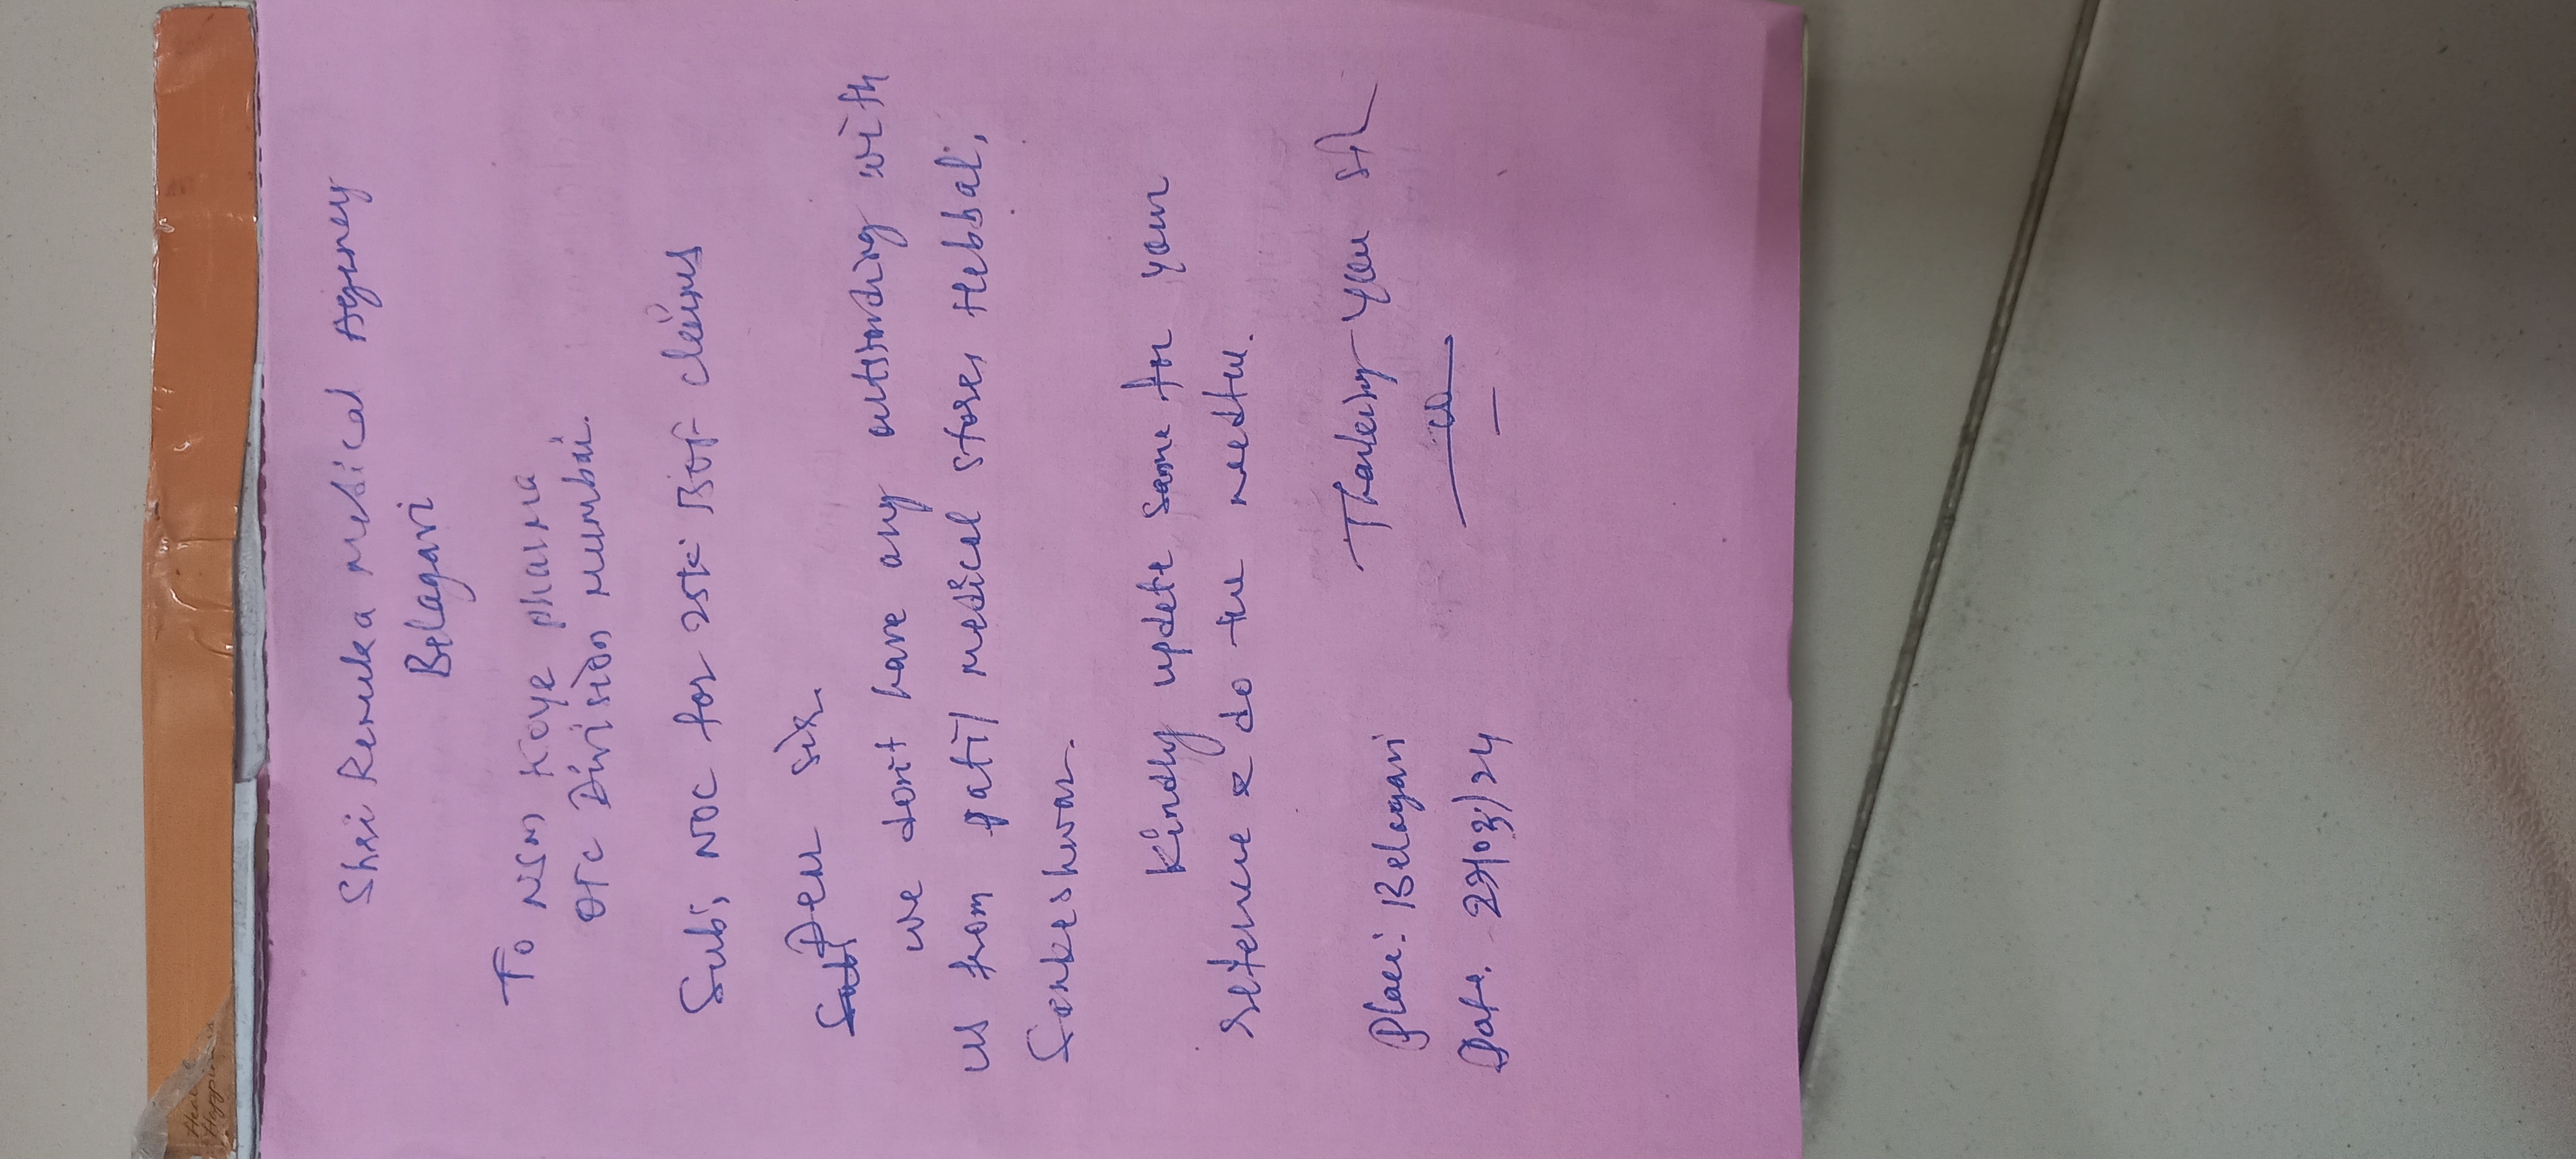 Shri Renuka Medical Agency
Belagavi
To NSM Koye pharma
OTC Division Mumbai.
Sub:, NOC for 25k BOF claims
Dear sir
we don't have any outstanding with
us from patil medical stores Hebbal,
Sankeshwar.
Kindly update same for your
reference & do the needful.
Thanking you sir
Place: Belagavi
Date. 29/03/24